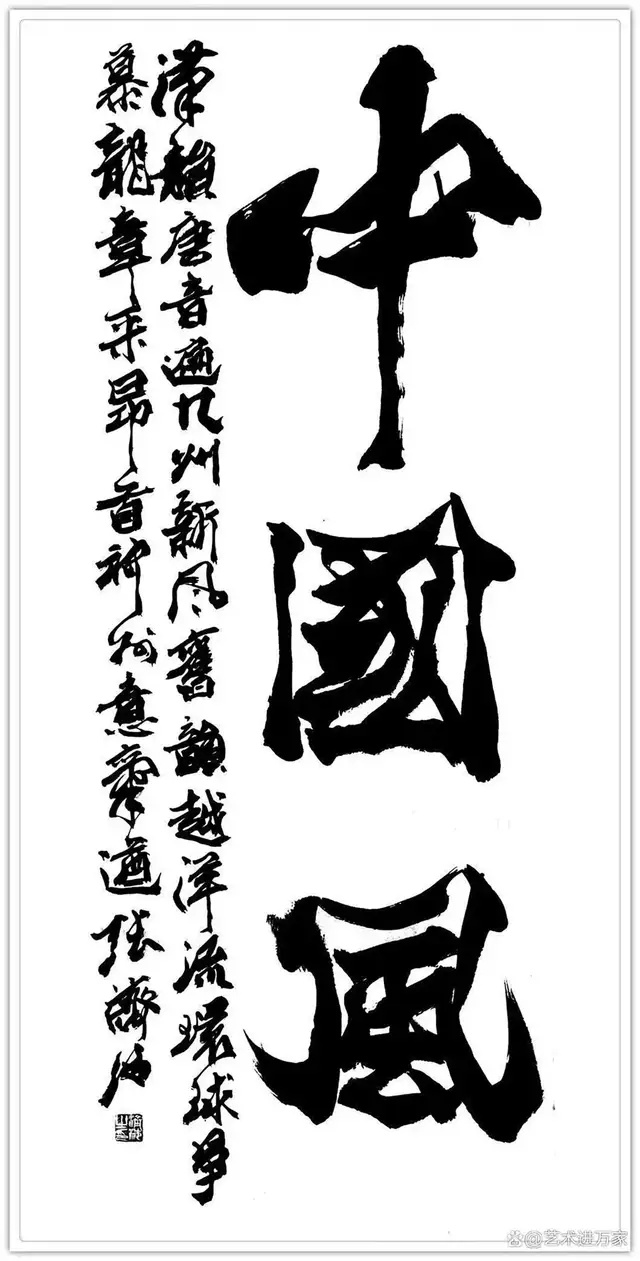 中國風
漢韻唐音遍九州新风舊韻越洋流環球爭
慕龍章采昂首神州意氣遒張濟海
@艺术进万家